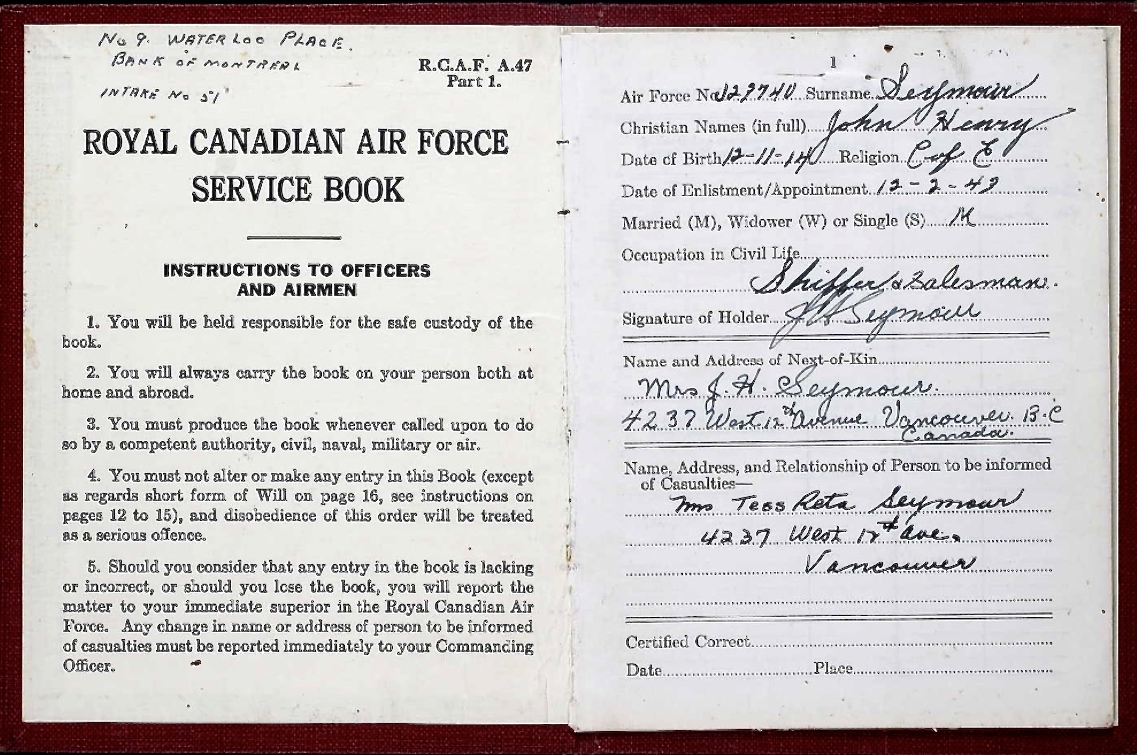 No 9. WATERLOO PLACE.
BANK OF MONTREAL
INTAKE No 51
R.C.A.F. A.47
Part 1.
ROYAL CANADIAN AIR FORCE
SERVICE BOOK
INSTRUCTIONS TO OFFICERS
AND AIRMEN
1. You will be held responsible for the safe custody of the
book.
2. You will always carry the book on your person both at
home and abroad.
3. You must produce the book whenever called upon to do
so by a competent authority, civil, naval, military or air.
4. You must not alter or make any entry in this Book (except
as regards short form of Will on page 16, see instructions on
pages 12 to 15), and disobedience of this order will be treated
as a serious offence.
5. Should you consider that any entry in the book is lacking
or incorrect, or should you lose the book, you will report the
matter to your immediate superior in the Royal Canadian Air
Force. Any change in name or address of person to be informed
of casualties must be reported immediately to your Commanding
Officer.
1
Air Force No. Surname Seymour
Christian Names (in full) John Henry
Date of Birth 12-11-14 Religion C of E
Date of Enlistment/Appointment 12-2-42
Married (M), Widower (W) or Single (S) M
Occupation in Civil Life
Shipper & Salesman.
Signature of Holder JH Seymour
Name and Address of Next-of-Kin
Mrs J. H. Seymour.
4237 West 12th Avenue Vancouver. B.C
Canada.
Name, Address, and Relationship of Person to be informed
of Casualties—
Mrs Tess Reta Seymour
4237 West 12th Ave.
Vancouver
Certified Correct
Date Place